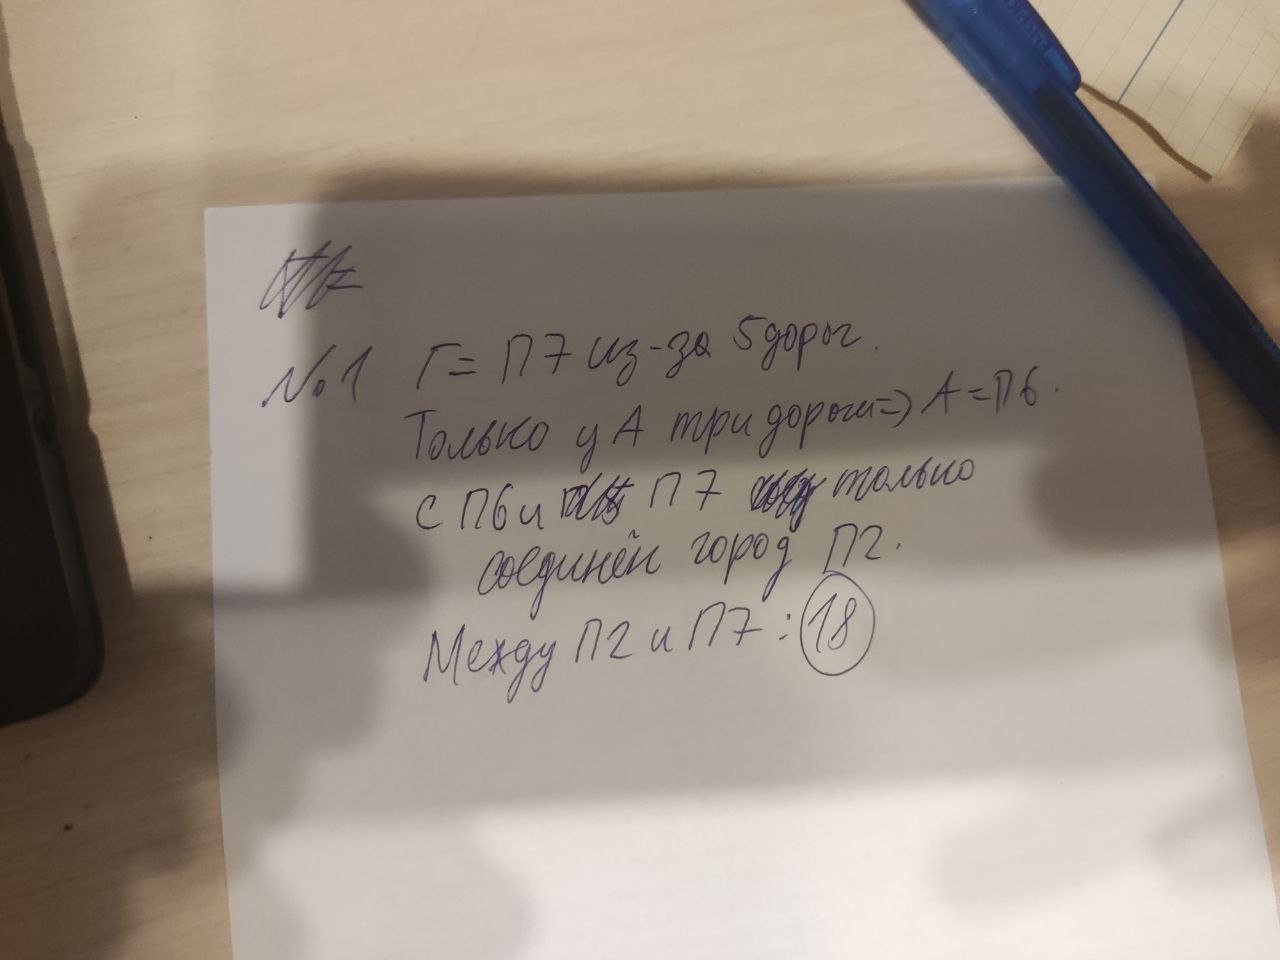 №1 Г = П7 из-за 5 дорог.
Только у А три дороги => А = П6.
С П6 и П7 только
соединён город П2.
Между П2 и П7: 18